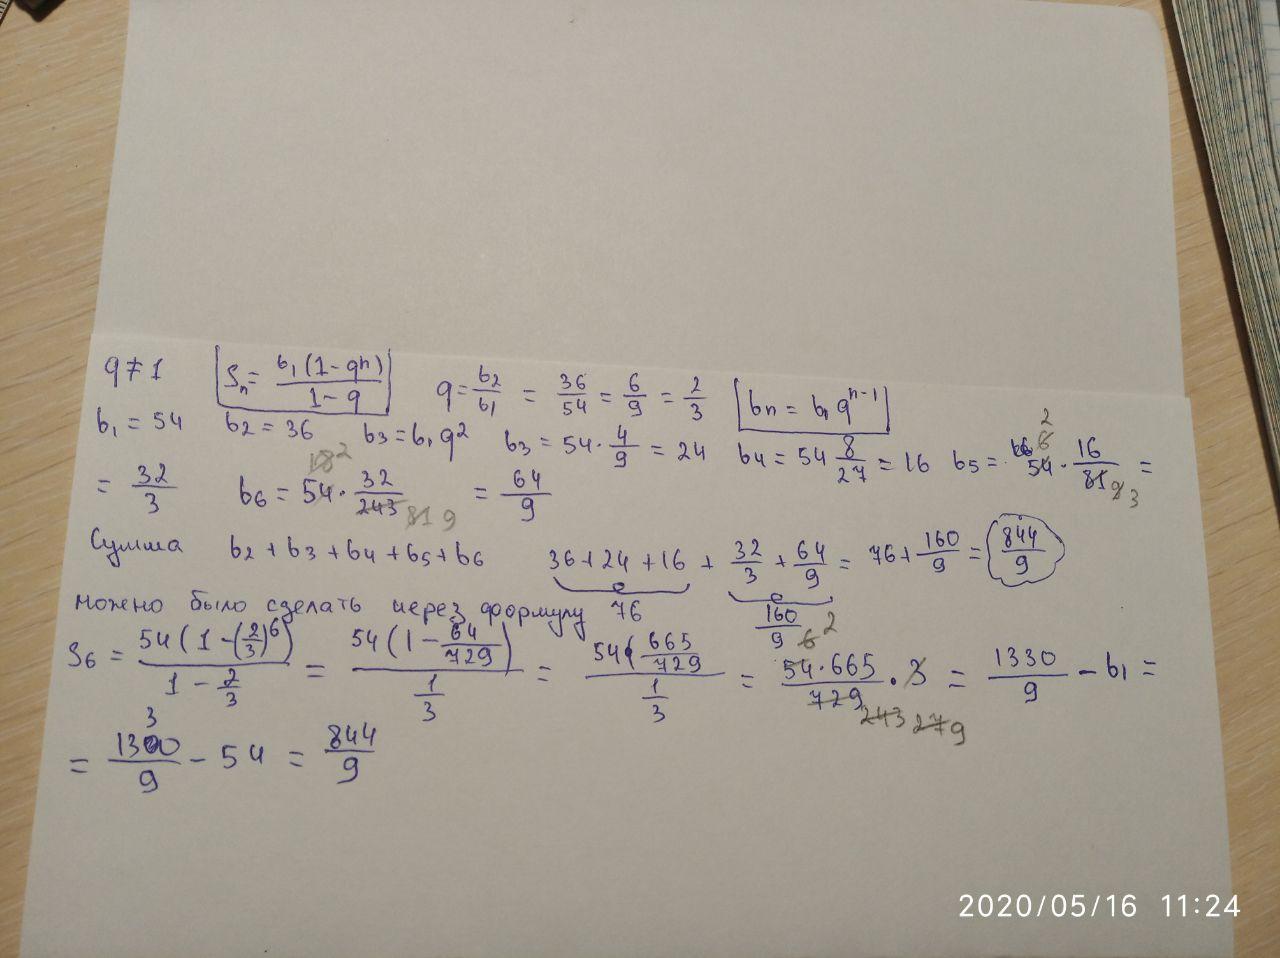 q≠1 Sn = b₁(1-qⁿ)/(1-q) q = b₂/b₁ = 36/54 = 6/9 = 2/3 bn = b₁ qⁿ⁻¹
b₁ = 54 b₂ = 36 b₃ = b₁q² b₃ = 54 · 4/9 = 24 b₄ = 54 8/27 = 16 b₅ = 54 · 16/81 =
= 32/3 b₆ = 54 · 32/243 = 64/9
Сумма b₂ + b₃ + b₄ + b₅ + b₆ 36 + 24 + 16 + 32/3 + 64/9 = 76 + 160/9 = 844/9
можно было сделать через формулу 76 160/9
S₆ = 54(1-(2/3)⁶)/(1-2/3) = 54(1-64/729)/(1/3) = 54(665/729)/(1/3) = 54·665/729 · 3 = 1330/9 - b₁ =
= 1330/9 - 54 = 844/9
2020/05/16 11:24